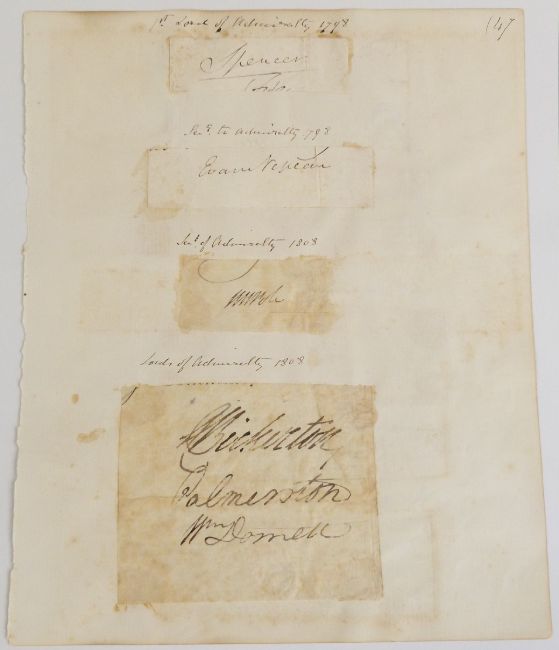 1st Lord of Admiralty 1798
(47
Spencer
Secy. to Admiralty 1798
Evan Nepean
Secy. of Admiralty 1808
Lords of Admiralty 1808
R Bickerton
Palmerston
Wm Domett